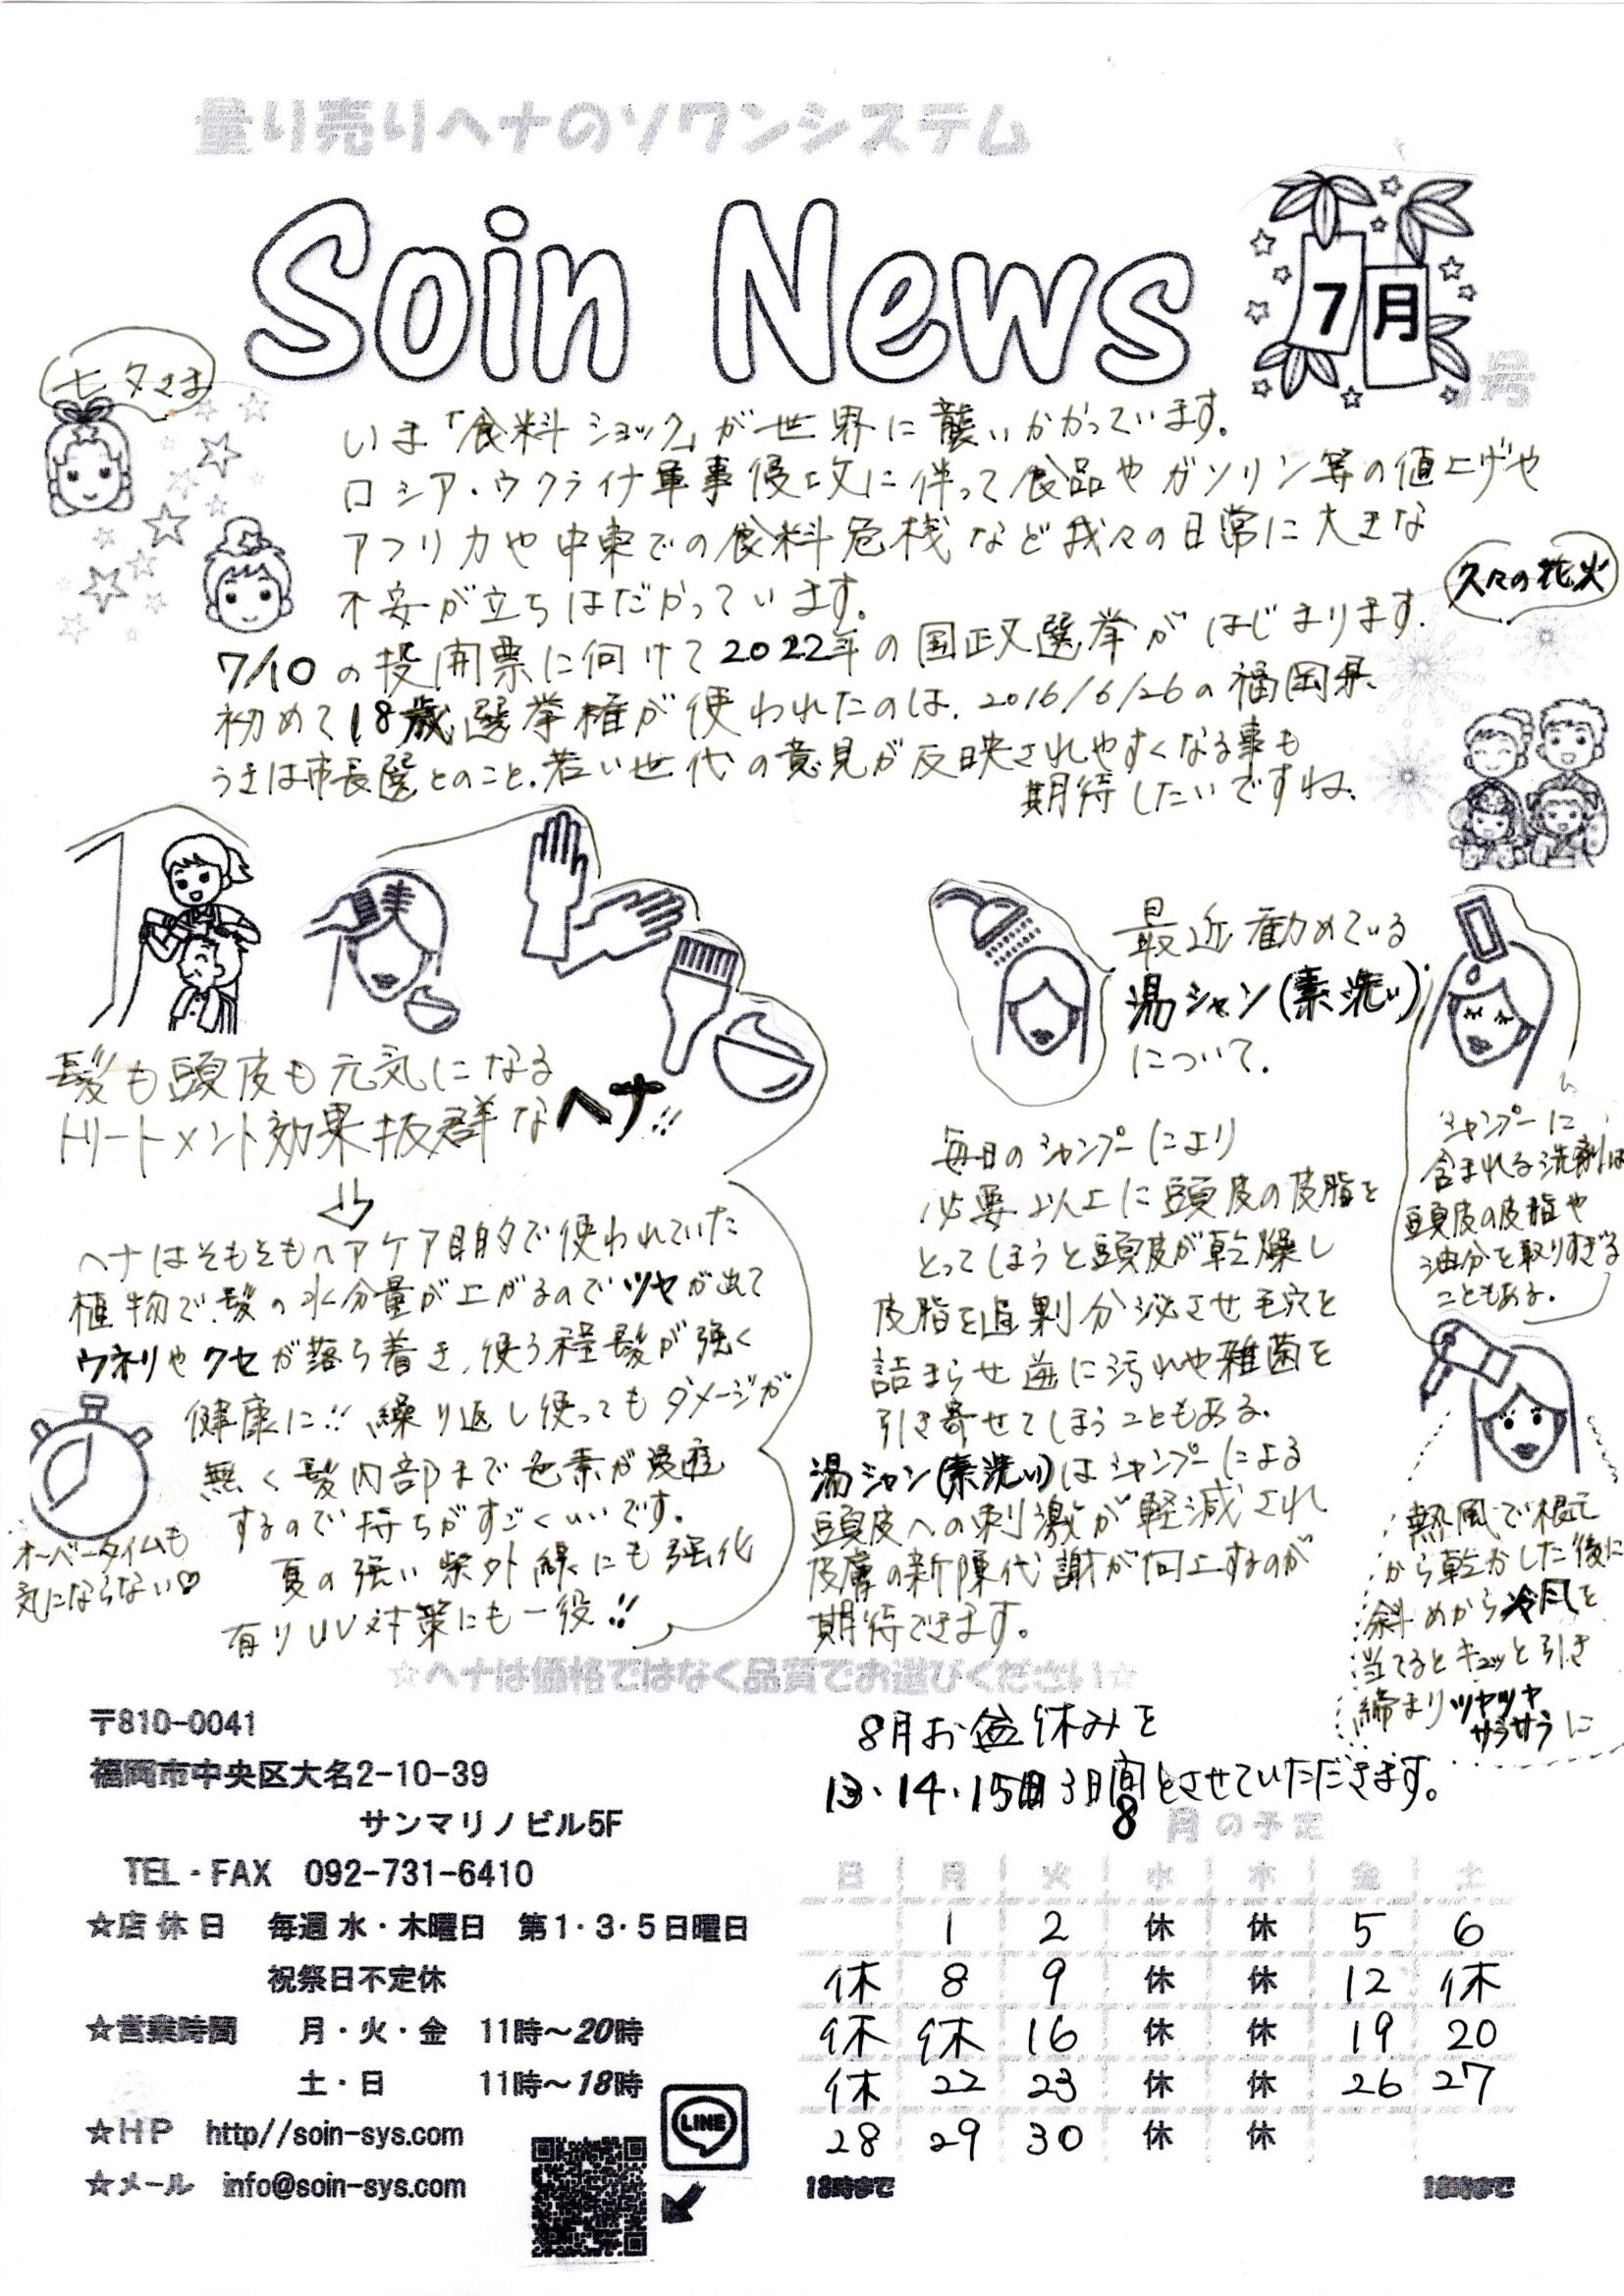 量り売りヘナのソワンシステム
Soin News
7月
号
七夕さま
いま「食料ショック」が世界に襲いかかっています。
ロシア・ウクライナ軍事侵攻に伴って食品やガソリン等の値上げや
アフリカや中東での食料危機など我々の日常に大きな
不安が立ちはだかっています。
久々の花火
7/10の投開票に向けて2022年の国政選挙がはじまります.
初めて18歳選挙権が使われたのは、2016/6/26の福岡県、
うきは市長選とのこと、若い世代の意見が反映されやすくなる事も
期待したいですね、
髪も頭皮も元気になる
トリートメント効果抜群なヘナ!!
ヘナはそもそもヘアケア目的で使われていた
植物で、髪の水分量が上がるのでツヤが出て
ウネリやクセが落ち着き、使う程髪が強く
健康に!! 繰り返し使ってもダメージが
無く髪内部まで色素が浸透
するので持ちがすごくいいです。
夏の強い紫外線にも強化
有りUV対策にも一役!!
オーバータイムも
気にならない♡
最近勧めている
湯シャン(素洗い)
について.
毎日のシャンプーにより
必要以上に頭皮の皮脂を
とってしまうと頭皮が乾燥し
皮脂を過剰分泌させ毛穴を
詰まらせ逆に汚れや雑菌を
引き寄せてしまうこともある.
湯シャン(素洗い)はシャンプーによる
頭皮への刺激が軽減され
皮膚の新陳代謝が向上するのが
期待できます。
シャンプーに
含まれる洗剤は
頭皮の皮脂や
油分を取りすぎる
こともある.
熱風で根元
から乾かした後に
斜めから冷風を
当てるとキュッと引き
締まりツヤツヤ
サラサラに
☆ヘナは価格ではなく品質でお選びください☆
〒810-0041
福岡市中央区大名2-10-39
サンマリノビル5F
TEL・FAX 092-731-6410
☆店休日 毎週 水・木曜日 第1・3・5日曜日
祝祭日不定休
☆営業時間 月・火・金 11時～20時
土・日 11時～18時
☆HP http//soin-sys.com
☆メール info@soin-sys.com
LINE
8月お盆休みを
13・14・15日3日間とさせていただきます。
8月の予定
日 月 火 水 木 金 土
1 2 休 休 5 6
休 8 9 休 休 12 休
休 休 16 休 休 19 20
休 22 23 休 休 26 27
28 29 30 休 休
18時まで 18時まで